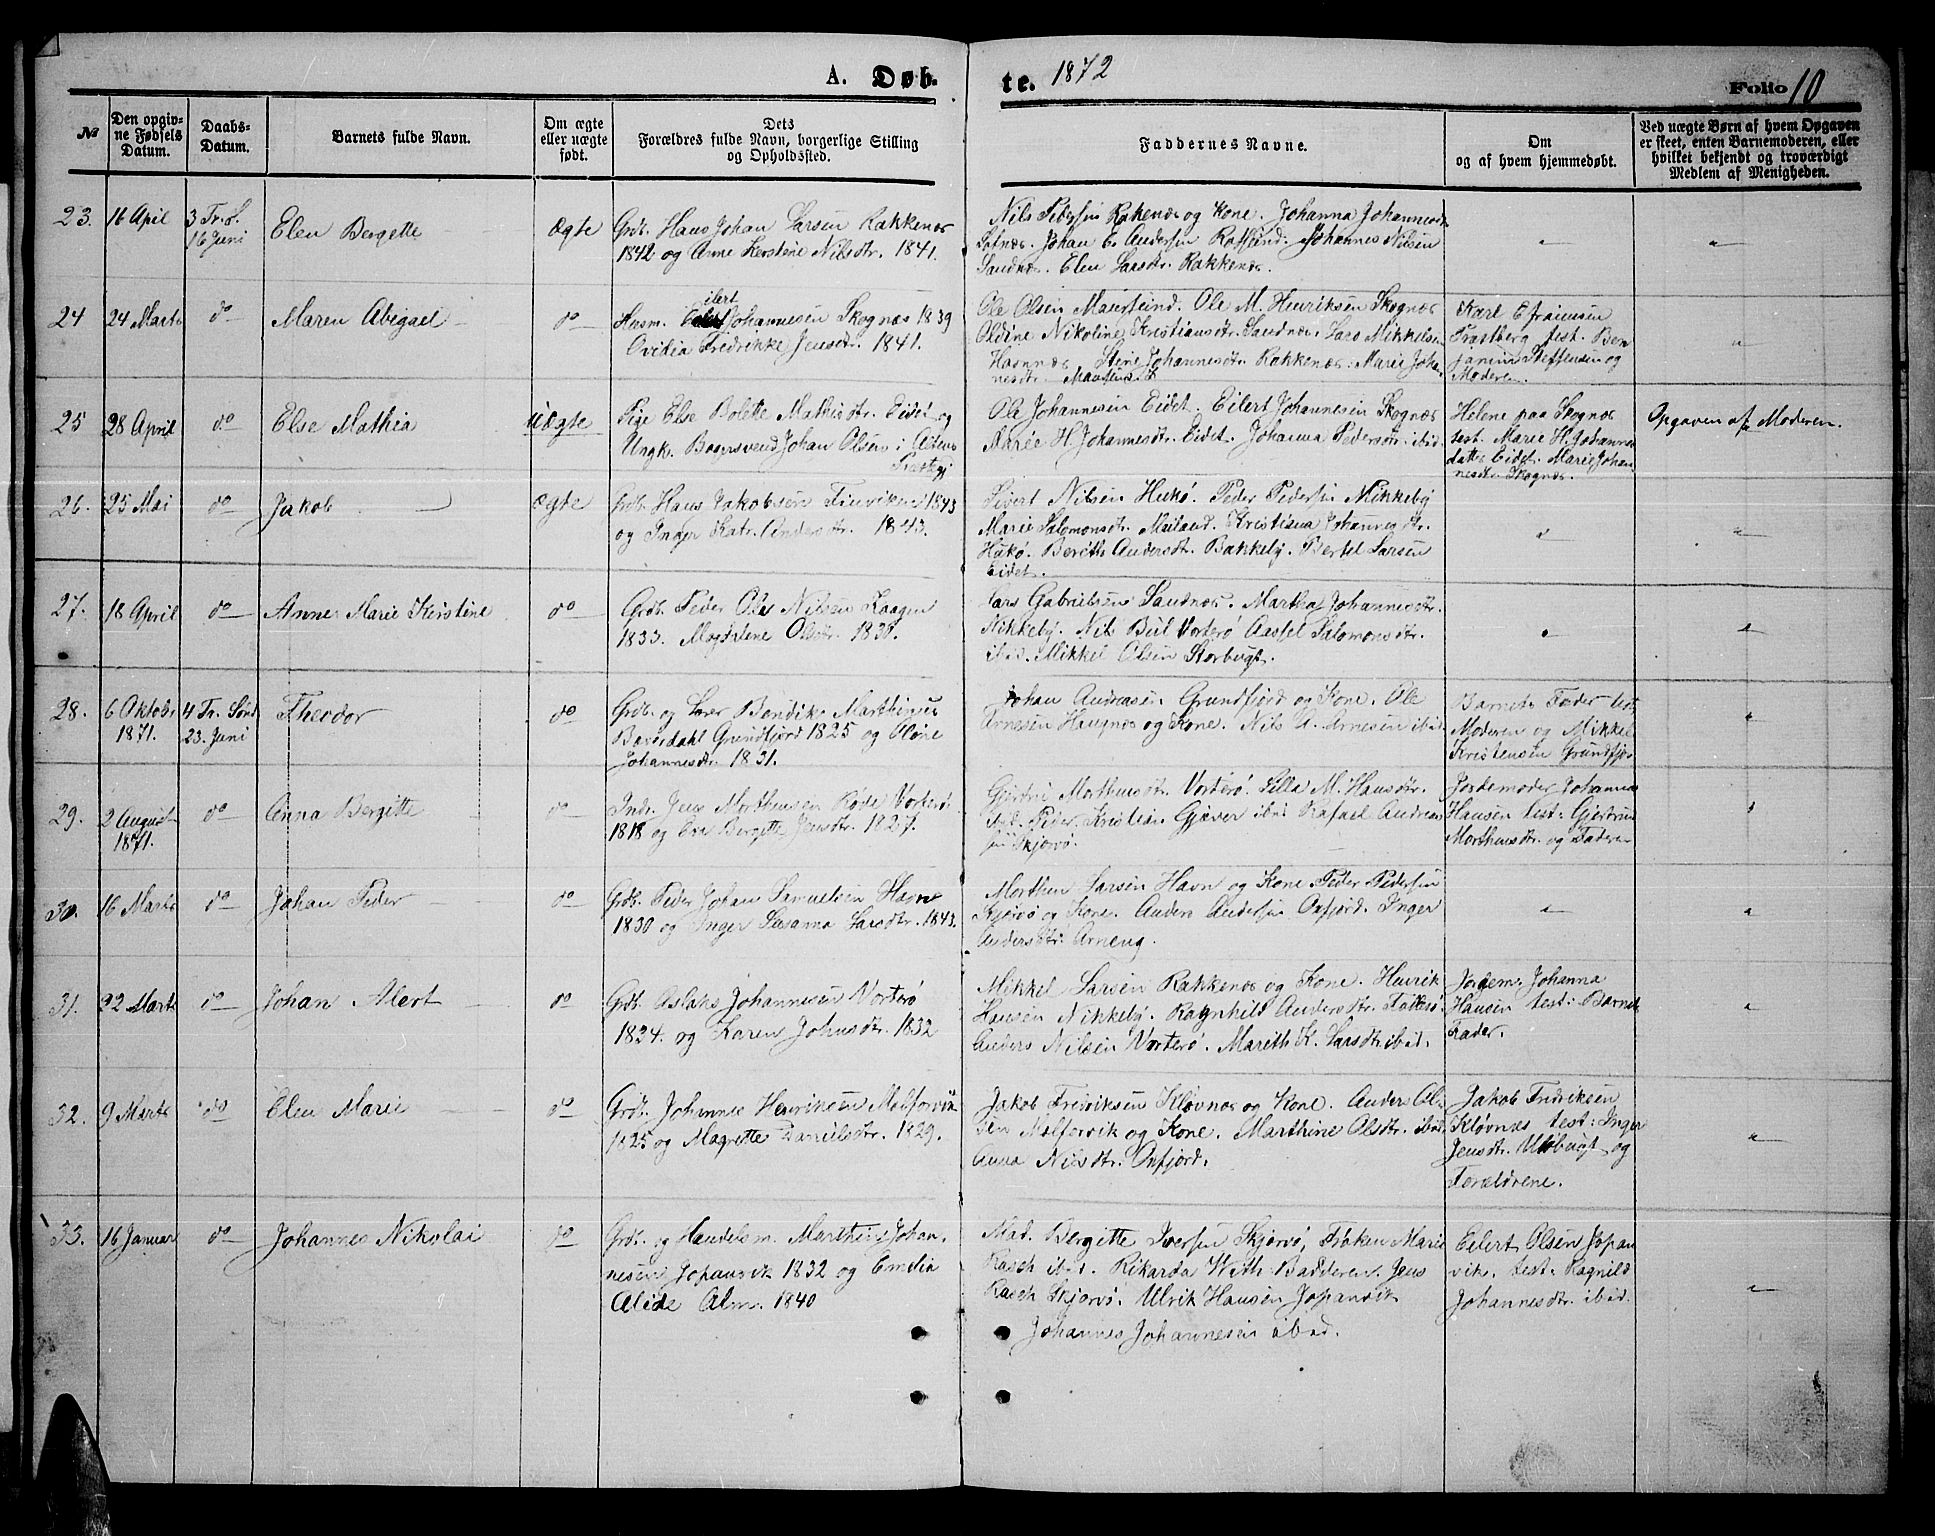 A. Døb. te. 1872 Folio 10
№
Den opgiv-
ne Fødsels
Datum.
Daabs-
Datum.
Barnets fulde Navn.
Om ægte
eller nægte
født.
Dets
Forældres fulde Navn, borgerlige Stilling
og Opholdsted.
Faddernes Navne.
Om
og af hvem hjemmedøbt.
Ved nægte Børn af hvem Opgaven
er skeet, enten Barnemoderen, eller
hvilket bekjendt og troværdigt
Medlem af Menigheden.
23.
16 April
3 Tr. S.
16 Juni
Elen Bergette
Ægte
Grdb. Hans Johan Larsen Rakkenæs
1842 og Anne Kerstine Nilsdtr. 1841.
Nils Pedersen Rakenæs og Kone. Johanna Johannesdtr.
Johan E. Andersen Johannes Nilsen
Sandnæs. Elen Larsdtr. Rakkenæs.
"
"
24
24 Marts
do
Maren Abigael
do
Husm. Eilert Johannesen Skognæs 1839
Ovidia Fredrikke Jensdtr. 1841.
Ole Olsen Maursund. Ole M. Henriksen Skognæs
Oldine Nikoline Kristiansdtr. Sandnæs. Lars Mikkelsen
Havnnæs Stine Johannesdtr. Rakkenæs. Marie Johan
nesdtr. Maursund
Karl Efraimsen
Trostberg test. Ben
jamin Steffensen og
Moderen.
"
25
28 April
do
Else Mathia
uÆgte
Pige Else Bolette Mathisdtr. Eidet og
Ungk. Johan Olsen i Altens
Præstegj
Ole Johannesen Eidet. Eilert Johannesen Skognæs
Marie H. Johannesdtr. Eidet. Johanna Pedersdtr. ibid
Helene paa Skognæs
test. Marie H. Johannes
datter Eidet. Marie Johan
nesdtr. Skognæs.
Opgaven af Moderen.
26.
25 Mai
do
Jakob
Ægte
Grdb. Hans Jakobsen 1843
og Inger Katr. Andersdtr. 1843.
Sivert Nilsen Hukø. Peder Pedersen Mikkeby
Marie Salomonsdtr. Meiland. Kristiana Johannesdtr.
Hukø. Berith Andersdt. Bakkeby. Bertel Larsen
Eidet.
"
"
27.
18 April
do
Anne Marie Kerstine
do
Grdb. Peder Ole Nilsen Kaagen
1833. Magdalene Olsdtr. 1830.
Lars Gabrielsen Sandnæs. Martha Johannesdtr.
Nikkeby. Nils Bul Vorterø Salomonsdtr.
ibid. Mikkel Olsen Storbugt.
"
"
28.
6 Oktobr
1871.
4 Tr. Sønd
23. Juni
Theodor
do
Grdb. og Lærer Bendik Marthinus
Baverdahl Grundfjord 1825 og Oline
Johannesdtr. 1831.
Johan Andreasen Grundfjord og Kone. Ole
Arnesen Haugnæs og Kone. Nils A. Arnesen ibid
Barnets Fader test
Moderen og Mikkel
Kristensen Grundfjor
"
29.
2 August
1871.
do
Anna Bergitte
do
Indr. Jens Morthensen Røde Vorterø
1818 og Ere Bergitte Jensdtr. 1827.
Gjertrui Morthensdtr. Vorterø. Silla M. Hansdtr.
ibid. Peder Kristian Gjæver ibid Rafael Andrea
sen Skjervø.
Jordemoder Johanna
Hansen test: Gjertrui
Morthensdtr. og Faderen
"
30.
16 Marts
do
Johan Peder
do
Grdb. Peder Johan Samuelsen Havn
1830 og Inger Susanna Larsdtr. 1843.
Morthen Larsen Havn og Kone. Peder Pedersen
Skjervø og Kone. Anders Andersen Oxfjord. Inger
Andersdtr. Arneng.
"
"
31.
22 Marts
do
Johan Alert
do
Grdb. Aslak Johannesen Vorterø
1824. og Karen Johnsdtr. 1832
Mikkel Larsen Rakkenæs og Kone. Henrik
Hansen Nikkeby. Ragnhild Andersdtr.
Anders Nilsen Vorterø. Mareth K. Larsdtr. ibid.
Jordem. Johanna
Hansen test: Barnets
Fader.
"
32.
9 Marts
do
Elen Marie
do
Grdb. Johannes Henriksen Molforvik
1825 og Magrette Danielsdtr. 1829.
Jakob Fredriksen Kløvnæs og Kone. Anders Ol
sen Molforvik og Kone. Marthine Olsdtr. ibid
Anna Nilsdtr. Oxfjord.
Jakob Fredriksen
Kløvnæs test: Inger
Jensdtr. og
Forældrene.
"
33.
16 Januar
do
Johannes Nikolai
do
Grdb. og Handelsm. Marthin Johan-
nesen Jopansvik 1832 og Emilia
Alide Alm. 1840
Mad. Bergitte Iversen Skjervø, Frøken Marie
Rasch ibid. Rikarda With Badderen. Jens
Rasch Skjervø. Ulrik Hansen Jopansvik
Johannes Johannesen ibid.
Eilert Olsen Jopan
vik. test: Ragnild
Johannesdtr. ibid.
"